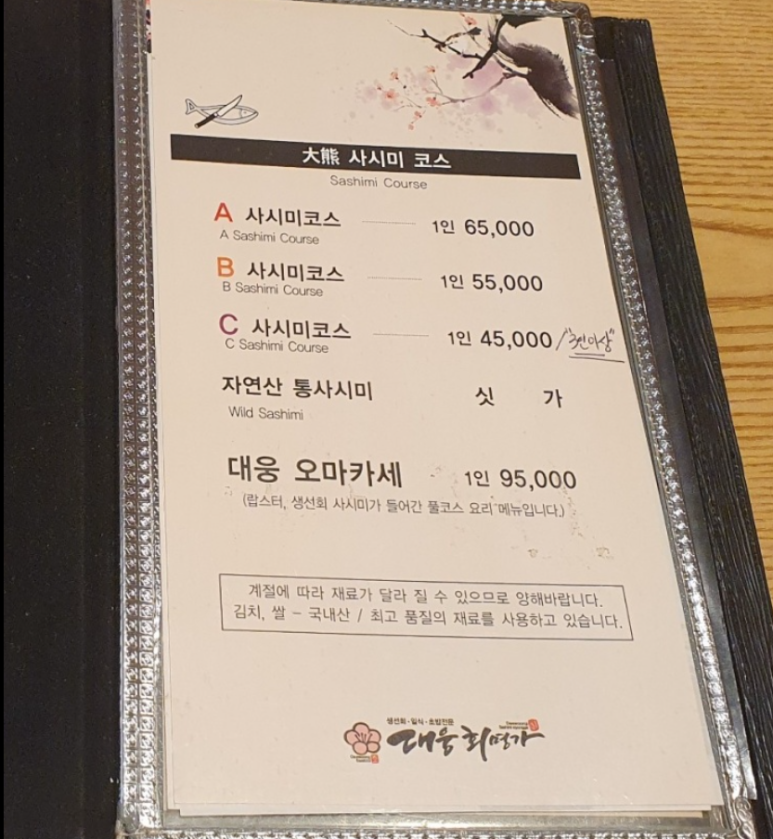 大熊 사시미 코스
Sashimi Course
A 사시미코스 1인 65,000
A Sashimi Course
B 사시미코스 1인 55,000
B Sashimi Course
C 사시미코스 1인 45,000 / "3인이상"
C Sashimi Course
자연산 통사시미 싯 가
Wild Sashimi
대웅 오마카세 1인 95,000
(랍스터, 생선회 사시미가 들어간 풀코스 요리 메뉴입니다.)
계절에 따라 재료가 달라 질 수 있으므로 양해바랍니다.
김치, 쌀 - 국내산 / 최고 품질의 재료를 사용하고 있습니다.
생선회·일식·초밥전문
대웅 회명가